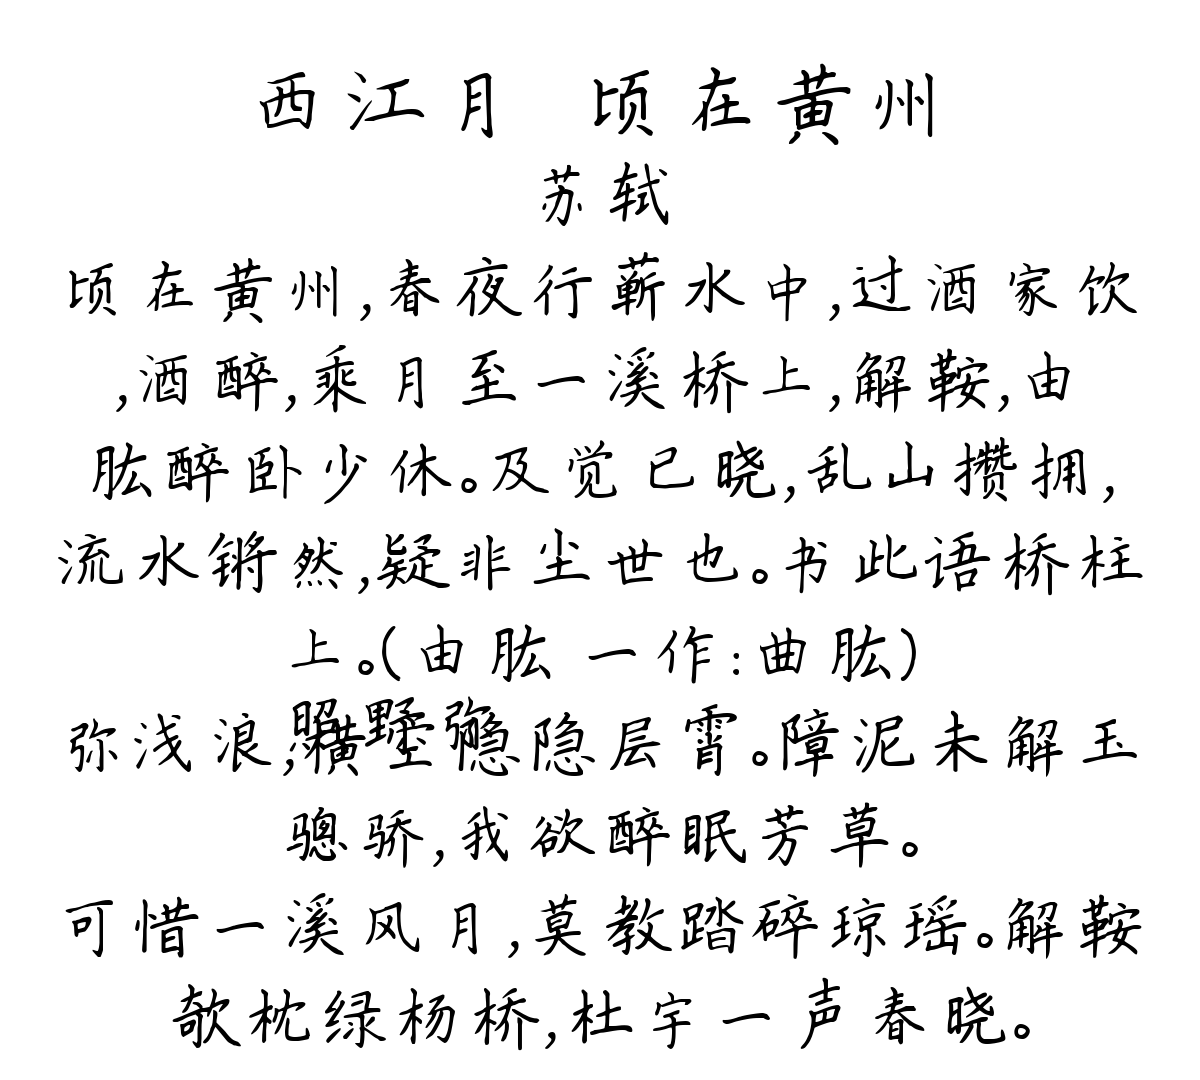 西江月 顷在黄州
苏轼
顷在黄州,春夜行蕲水中,过酒家饮
,酒醉,乘月至一溪桥上,解鞍,由
肱醉卧少休。及觉已晓,乱山攒拥,
流水锵然,疑非尘世也。书此语桥柱
上。(由肱 一作:曲肱)
照野弥
弥浅浪,横空隐隐层霄。障泥未解玉
骢骄,我欲醉眠芳草。
可惜一溪风月,莫教踏碎琼瑶。解鞍
欹枕绿杨桥,杜宇一声春晓。